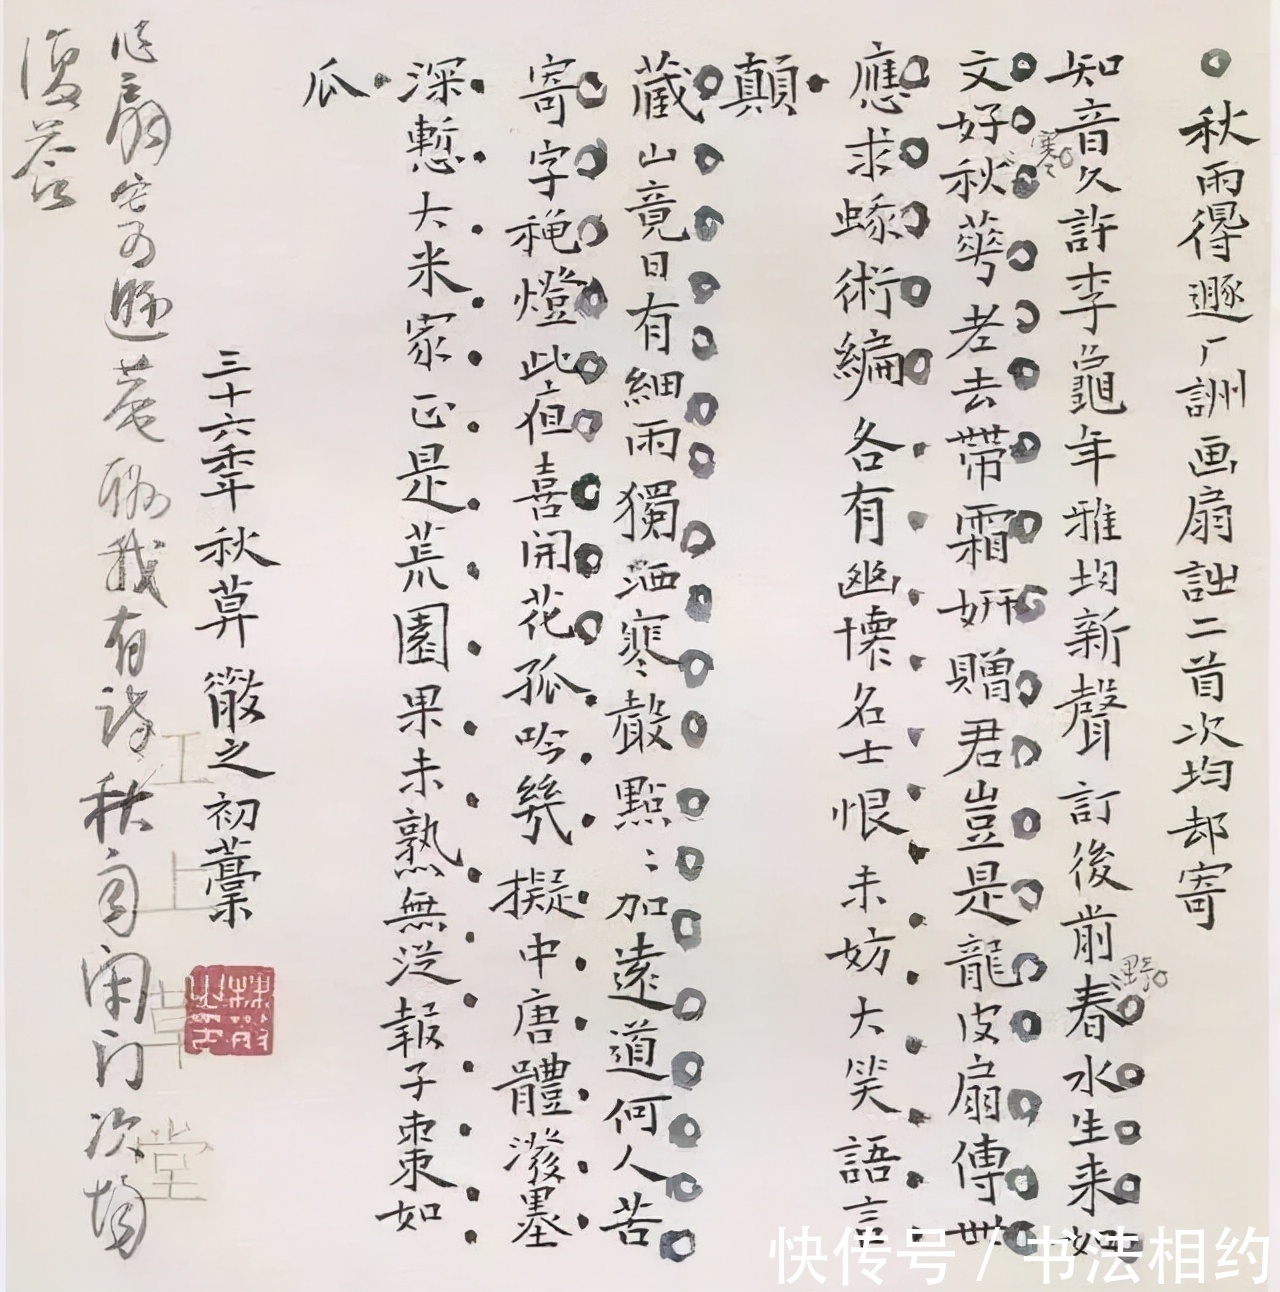 秋雨得遯厂詶画扇詘二首次均却寄
知音久許李龜年雅均新聲訂後前春水生来如
野
文好秋華老去帶霜妍贈君豈是龍皮扇傳世
寒
應求蝝術編各有幽懷名士恨未妨大笑語言
顛
藏山竟日有細雨獨洒寒聲點〻加遠道何人苦
寄字秾燈此疽喜開花孤吟幾擬中唐體潑墨
深慙大米家正是荒園果未熟無從報子棗如
瓜
三十六季秋草散之初藁
江上草堂
扇寄遯菴 我有詩秋自閑门次均
復答
快传号 / 书法相约